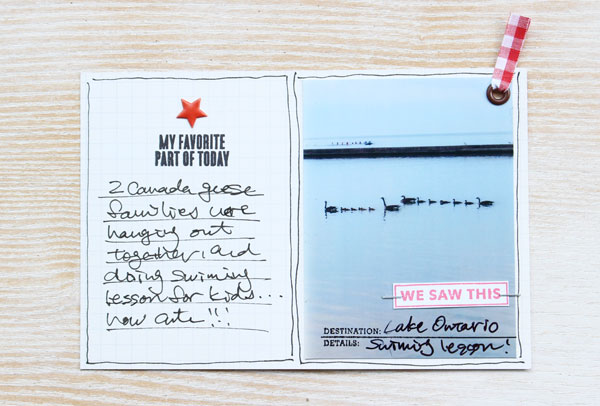 MY FAVORITE
PART OF TODAY
2 Canada geese
families were
hanging out
together, and
doing swiming
lesson for kids...
how cute!!!
WE SAW THIS
DESTINATION: Lake Ontario
DETAILS: Swiming lesson!